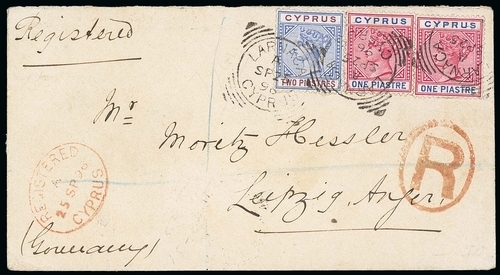 Registered
CYPRUS CYPRUS CYPRUS
TWO PIASTRES ONE PIASTRE ONE PIASTRE
LARNACA
A
SP 25
96
CYPRUS
Mr
Moritz Hessler
Leipzig, Anger.
(Germany)
REGISTERED
A
25 SP 96
CYPRUS
R